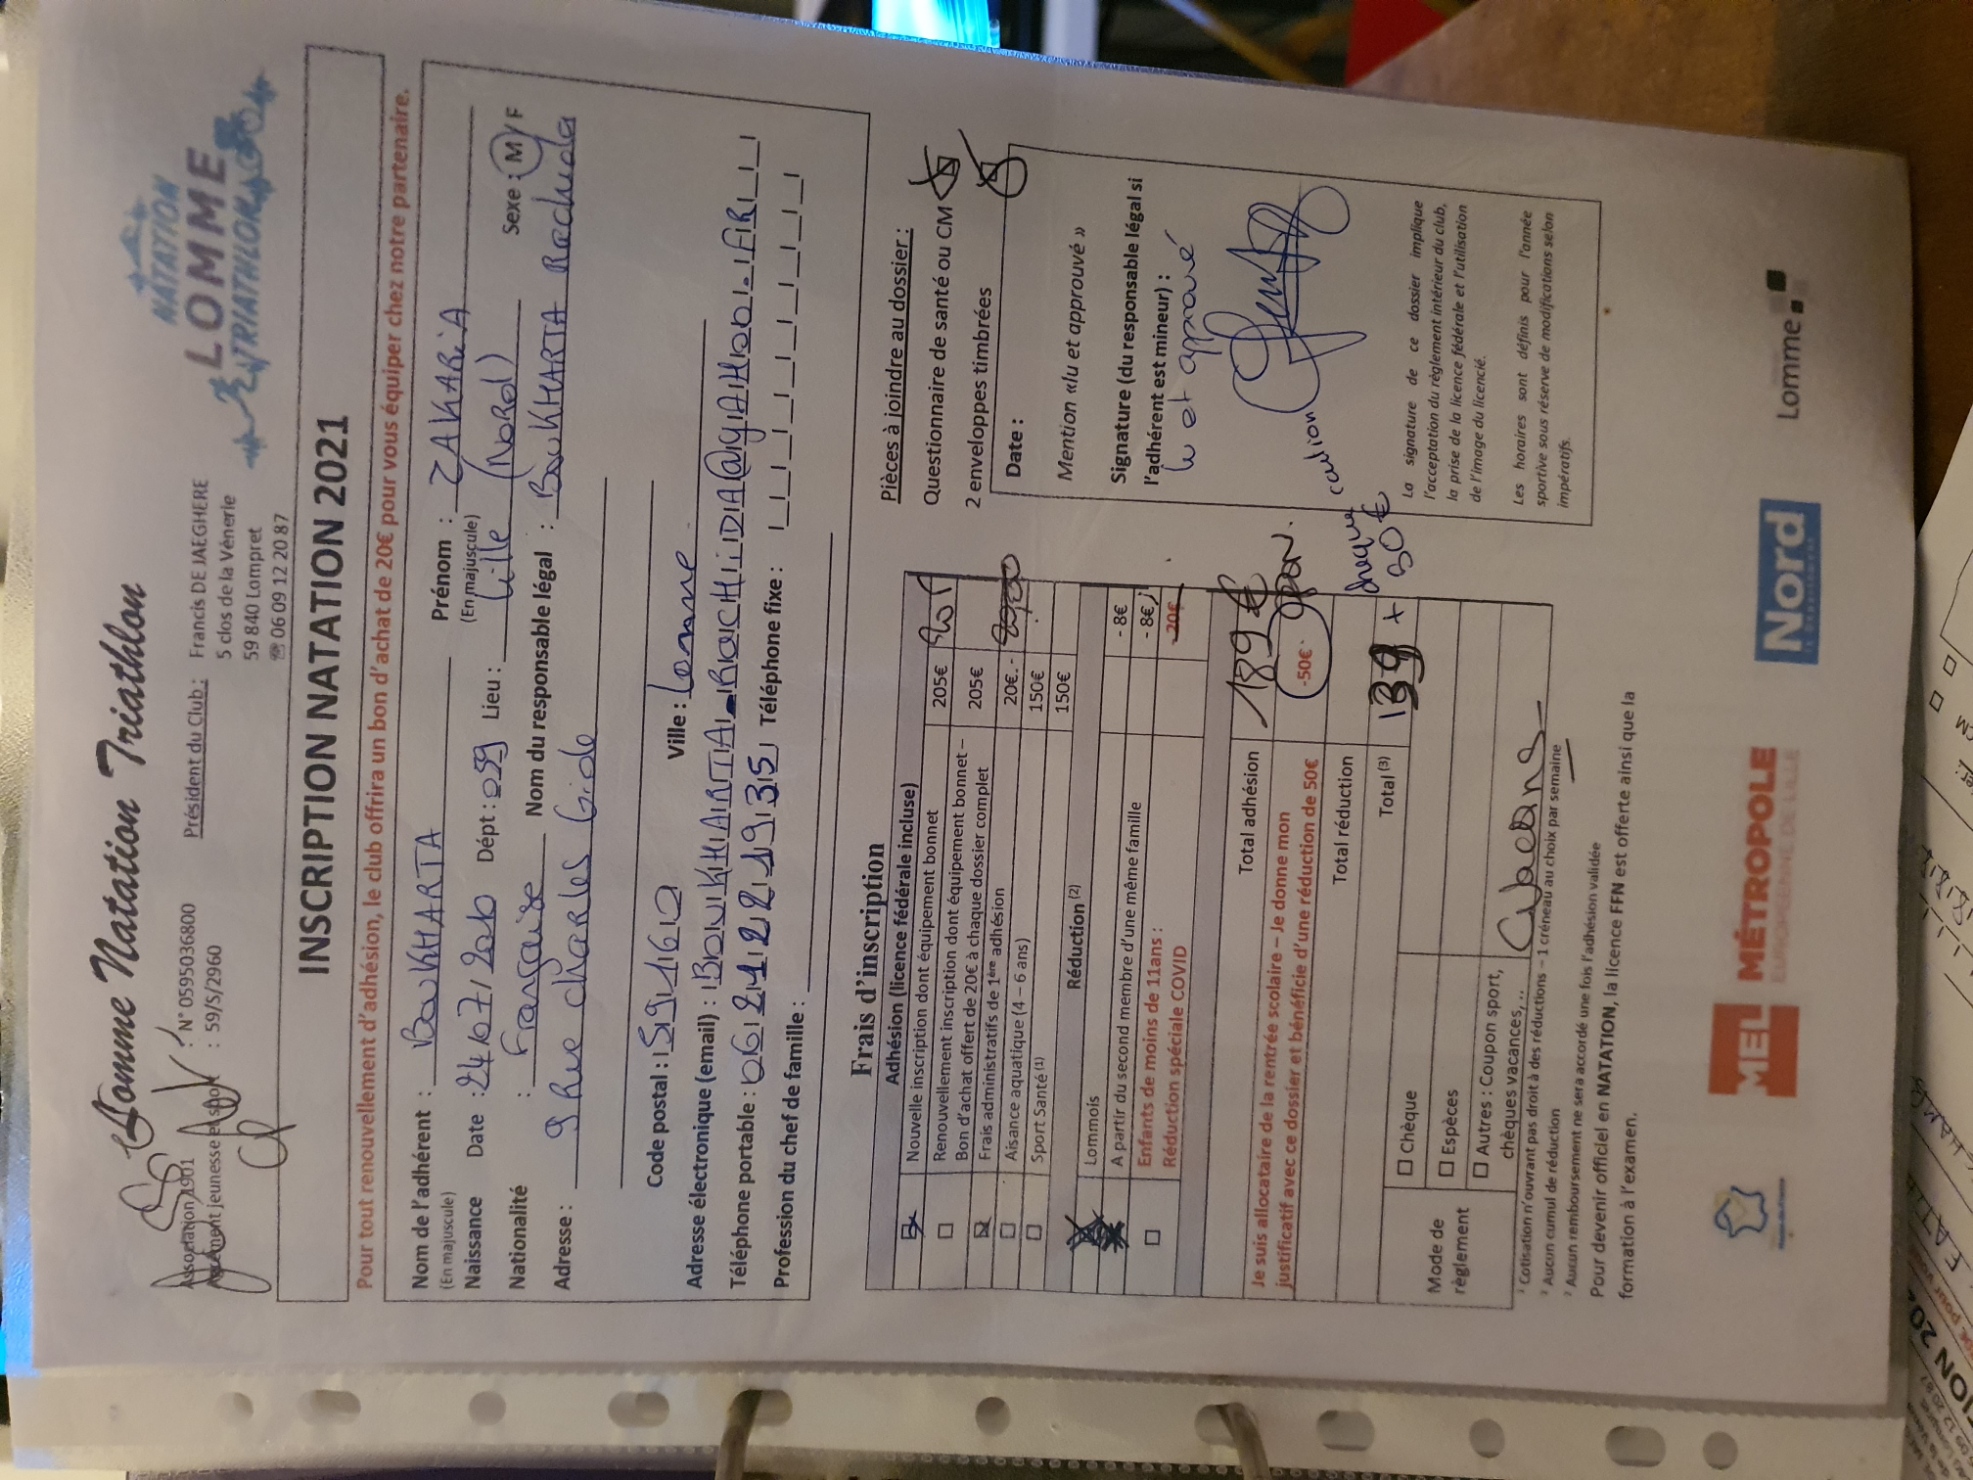 Lomme Natation Triathlon
Association 1901 : N° 05950368000
Agrément jeunesse et sport : 59/S/2960
Président du Club : Francis DE JAEGHERE
5 clos de la Vènerie
59 840 Lompret
☏ 06 09 12 20 87
NATATION
LOMME
TRIATHLON
INSCRIPTION NATATION 2021
Pour tout renouvellement d'adhésion, le club offrira un bon d'achat de 20€ pour vous équiper chez notre partenaire.
Nom de l'adhérent : BouKHARTA Prénom : ZAKARiA
(En majuscule) (En majuscule)
Naissance Date : 24/07/2010 Dépt : 059 Lieu : Lille (Nord) Sexe : M / F
Nationalité : Française Nom du responsable légal : BouKHARTA Rachida
Adresse : 9 Rue Charles Gide
Code postal : 59160 Ville : Lomme
Adresse électronique (email) : BOUKHARTA_ROCHiDA@yAHOO.FR
Téléphone portable : 0621221935 Téléphone fixe :
Profession du chef de famille :
Frais d'inscription
Adhésion (licence fédérale incluse)
Nouvelle inscription dont équipement bonnet 205€
Renouvellement inscription dont équipement bonnet – 205€
Bon d'achat offert de 20€ à chaque dossier complet
Frais administratifs de 1ère adhésion 20€.-
Aisance aquatique (4 – 6 ans) 150€
Sport Santé (1) 150€
Réduction (2)
Lommois - 8€
A partir du second membre d'une même famille - 8€
Enfants de moins de 11ans : -20€
Réduction spéciale COVID
Total adhésion 189 €
Je suis allocataire de la rentrée scolaire – Je donne mon -50€
justificatif avec ce dossier et bénéficie d'une réduction de 50€
Total réduction
Total (3) 139 + chèque caution
30 €
Mode de règlement
Chèque
Espèces
Autres : Coupon sport,
chèques vacances,..
Pièces à joindre au dossier :
Questionnaire de santé ou CM
2 enveloppes timbrées
Date :
Mention «lu et approuvé »
Signature (du responsable légal si
l'adhérent est mineur) :
lu et approuvé
La signature de ce dossier implique
l'acceptation du règlement intérieur du club,
la prise de la licence fédérale et l'utilisation
de l'image du licencié.
Les horaires sont définis pour l'année
sportive sous réserve de modifications selon
impératifs.
¹ Cotisation n'ouvrant pas droit à des réductions – 1 créneau au choix par semaine
² Aucun cumul de réduction
³ Aucun remboursement ne sera accordé une fois l'adhésion validée
Pour devenir officiel en NATATION, la licence FFN est offerte ainsi que la
formation à l'examen.
MEL MÉTROPOLE
EUROPÉENNE DE LILLE
Nord
Lomme